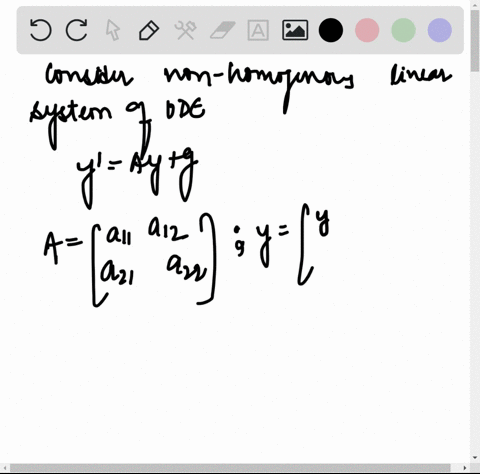 Consider non-homogenous linear
system of ODE
y' = Ay + g
A = [a11 a12 ; y = [y
a21 a22]